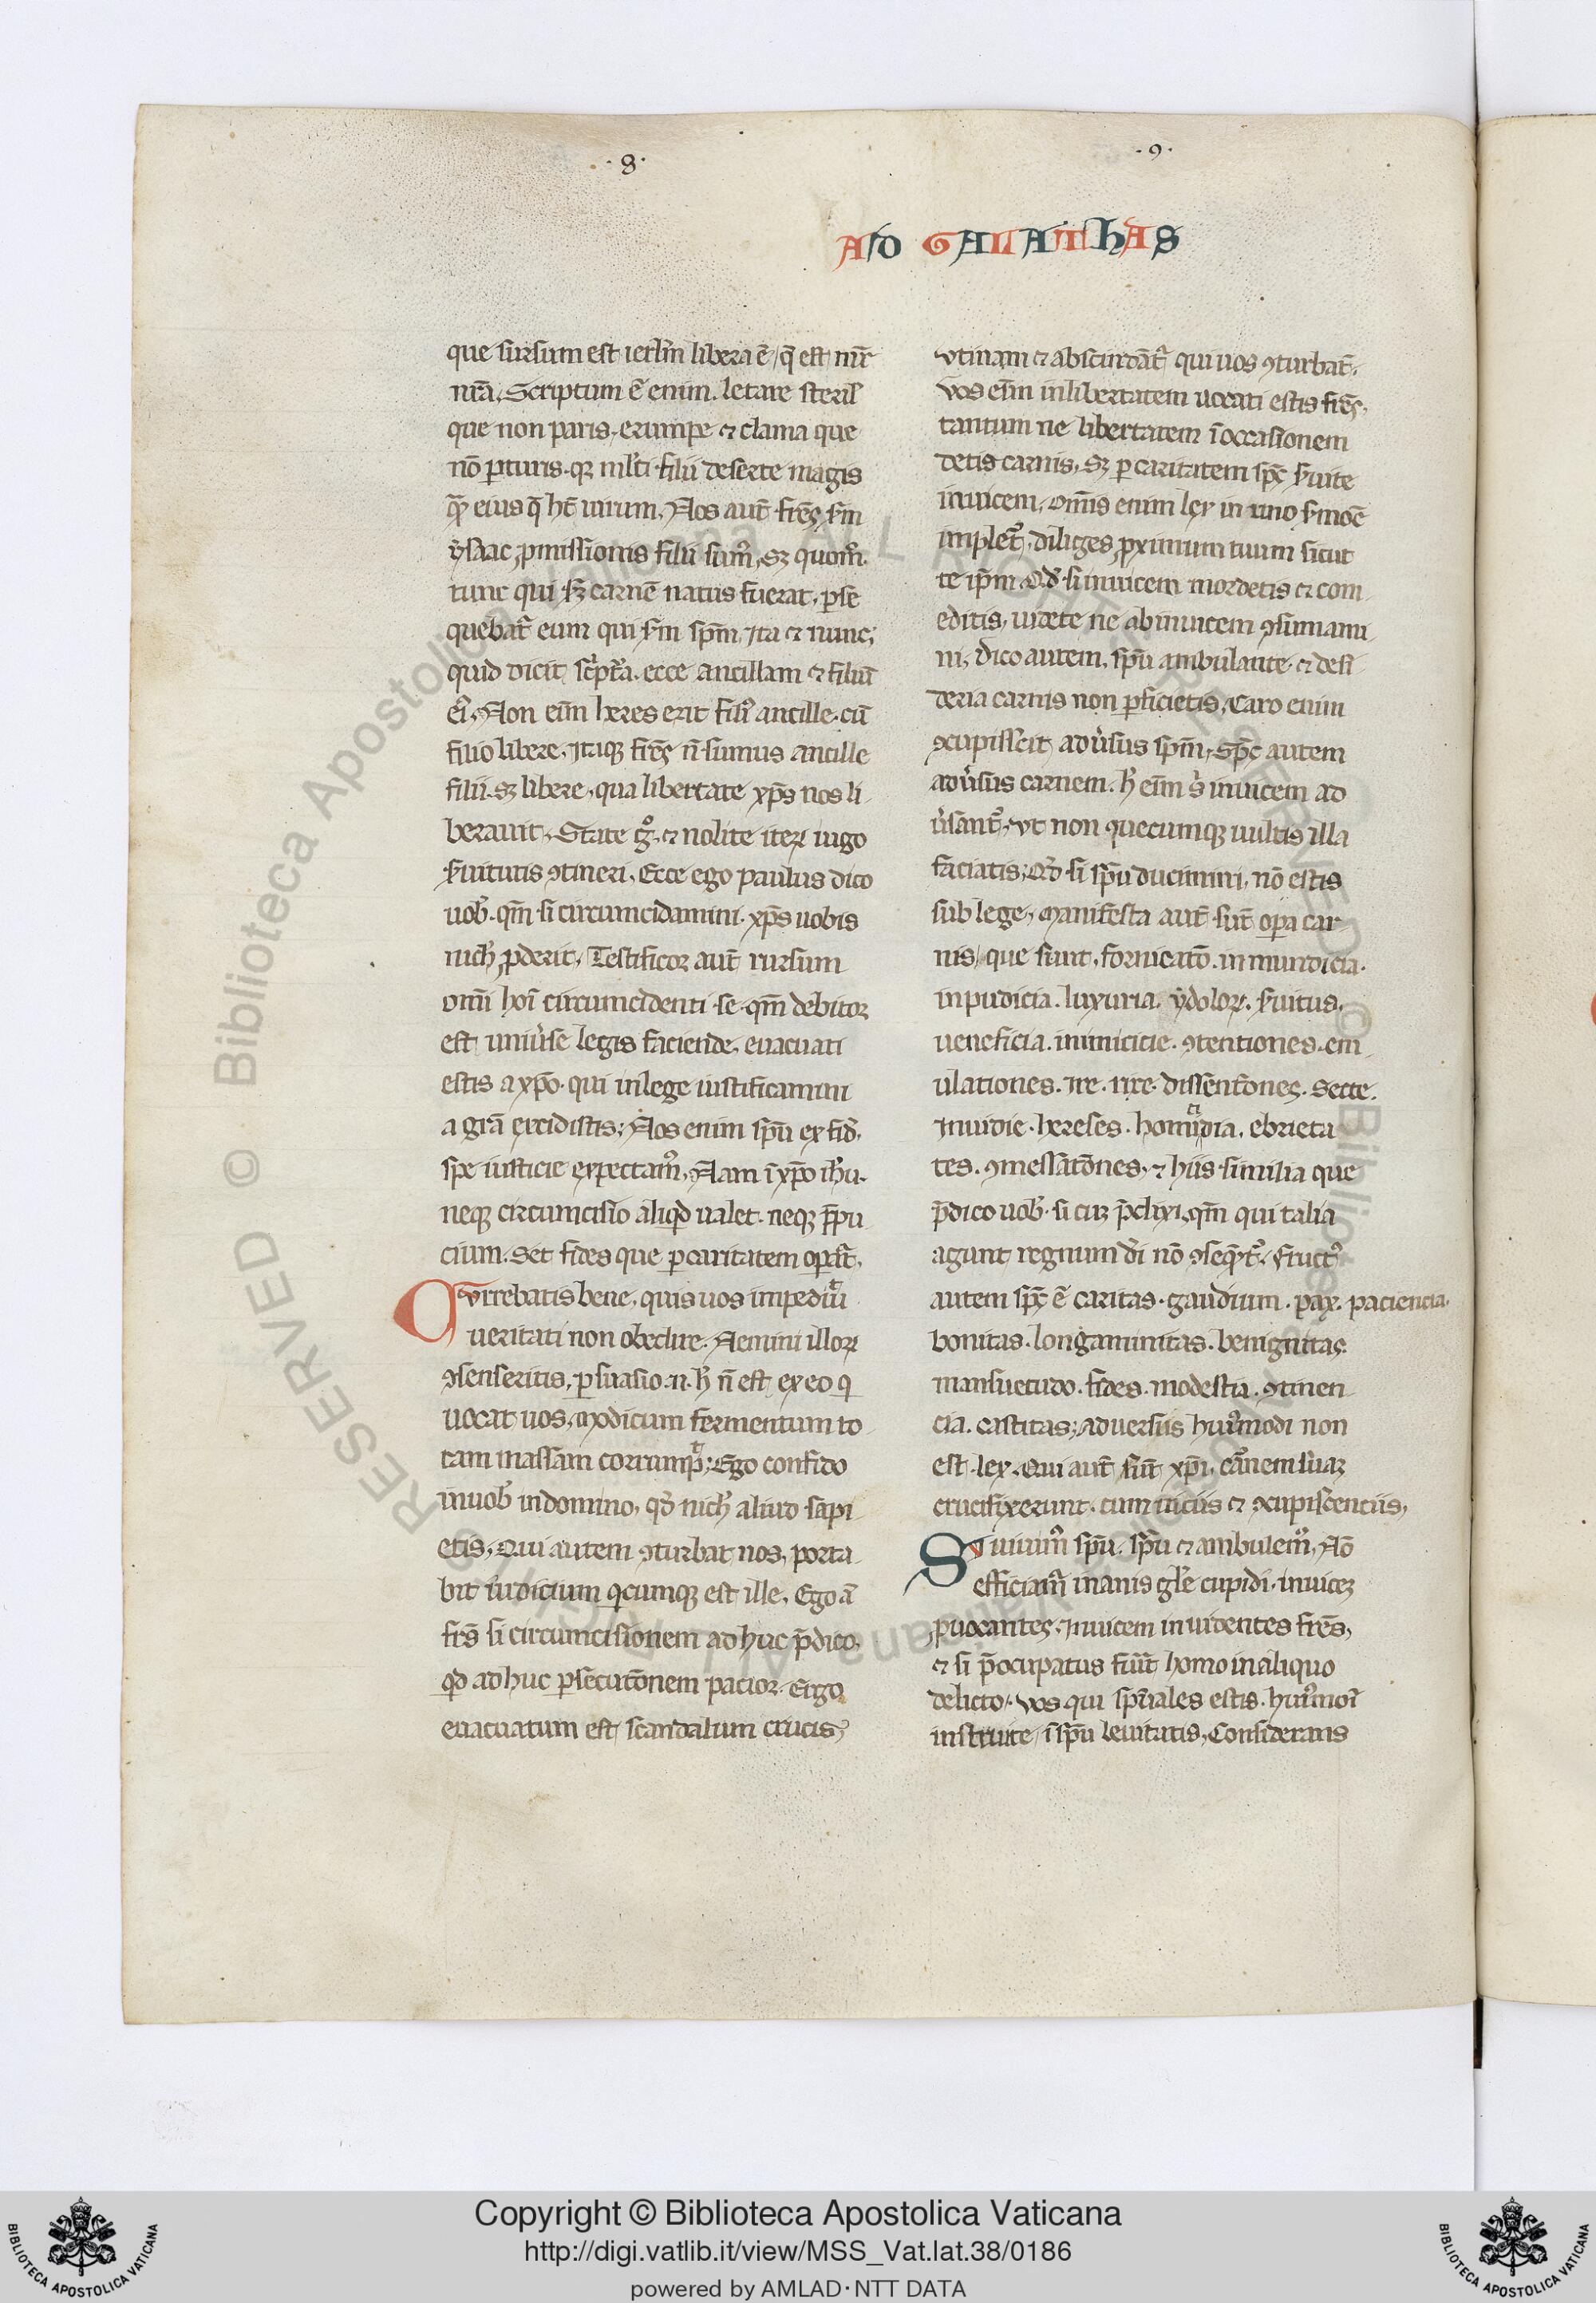 ·8·
·9·
AD GALATHAS
que sursum est ierl̅m libera ē q̄ est mr̄
nr̄a. Scriptum ē enim. letare steril̕
que non paris. erumpe ⁊ clama que
nō ꝑturis. qꝛ ml̕ti filii deserte magis
qͣꝫ eius q̄ ht̄ uirum. Nos aut̄ fr̄es s̕m
ẏsaac ꝓmissionis filii sumꝰ. sꝫ quom̊.
tunc qui s̕m carnē natus fuerat. ꝑse
quebat̄ eum qui s̕m sp̄m. Ita ⁊ nunc;
quid dicit sc̕pt̄a. ecce ancillam ⁊ filiū
eiꝰ. Non eīm heres erit filiꝰ ancille. cū
filio libere. Itaqꝫ fr̄es n̄ sumus ancille
filii. sꝫ libere. qua libertate xp̄s nos li
berauit. State g̊. ⁊ nolite iteꝝ iugo
s̕uitutis ꝯtineri. Ecce ego paulus dico
uob̕. qm̄ si circumcidamini. xp̄s uobis
nich̕ ꝓderit. Testificor aut̄ rursum
omī hoī circumcidenti se. qm̄ debitor
est uniu̕se legis faciende. euacuati
estis a xp̄o. qui in lege iustificamini
a gr̄a excidistis; Nos enim sp̄u ex fid̕.
spe iusticie expectamꝰ. Nam ī xp̄o ih̄u.
neqꝫ circumcisio aliqͥd ualet. neqꝫ p̄pu
cium. Set fides que ꝑ caritatem opat̄.
Currebatis bene. quis uos impediuit
ueritati non obedire. Nemini illoꝝ
ꝯsenseritis. ꝑsuasio .n. h̕ n̄ est ex eo qͥ
uocat uos. Modicum fermentum to
tam massam corrumpit; Ego confido
in uob̕ in domino. qd̕ nich̕ aliud sapi
etis. Qui autem ꝯturbat uos. porta
bit iudicium qͥcumqꝫ est ille. Ego ā
fr̄s si circumcisionem ad huc p̄dico.
qͥd ad huc ꝑsecutōnem pacior. Ergo
euacuatum est scandalum crucis.
Vtinam ⁊ abscindāt̄ qui uos ꝯturbāt.
Vos eīm in libertatem uocati estis fr̄es.
tantum ne libertatem ī occasionem
detis carnis. Sꝫ ꝑ caritatem sp̄c s̕uite
inuicem. Omīs enim lex in uno s̕mōe
impletꝰ. diliges ꝓximum tuum sicut
te ip̄m. Qd̕ si inuicem mordetis ⁊ com
editis. uidete ne ab inuicem ꝯsumami
ni. Dico autem. sp̄u ambulante ⁊ desi
deria carnis non ꝑficietis. Caro enim
ꝯcupiscit adu̕sus sp̄m. Sp̄c autem
adu̕sus carnem. h̕ eīm s̕ inuicem ad
u̕santꝰ. ut non quecumqꝫ uultis illa
faciatis; Qd̕ si sp̄u ducimini. nō estis
sub lege. Manifesta aut̄ sūt opa car
nis. que sunt. fornicatō. inmundicia.
inpudicia. luxuria. ẏdoloꝝ. s̕uitus.
ueneficia. inimicicie. ꝯtentiones. em
ulationes. Ire. rixe. dissentōnes. Secte.
Inuidie. hereses. homicidia. ebrieta
tes. ꝯmessatōnes. ⁊ hiis similia que
p̄dico uob̕. sicuꝫ p̄dixi. qm̄ qui talia
agunt regnum dī nō ꝯseqͣntꝰ. Fructꝰ
autem sp̄c ē caritas. gaudium. pax. paciencia.
bonitas. longanimitas. benignitas.
mansuetudo. fides. modestia. ꝯtinen
cia. castitas; Aduersus huiꝰmodi non
est lex. Qui aut̄ sūt xp̄i. carnem suaꝫ
crucifixerunt. cum uiciis ⁊ ꝯcupiscentiis.
Si uiuimꝰ sp̄u. sp̄u ⁊ ambulemꝰ. Nō
efficiam̄ inanis gl̕e cupidi. inuiceꝫ
ꝓuocantes. Inuicem inuidentes fr̄es.
⁊ si p̄ocupatus fuīt homo in aliquo
delicto. Vos qui sp̄riales estis. huiꝰmōi
instruite ī sp̄u leuitatis. Considerans
Copyright © Biblioteca Apostolica Vaticana
http://digi.vatlib.it/view/MSS_Vat.lat.38/0186
powered by AMLAD·NTT DATA
BIBLIOTECA APOSTOLICA VATICANA
BIBLIOTECA APOSTOLICA VATICANA